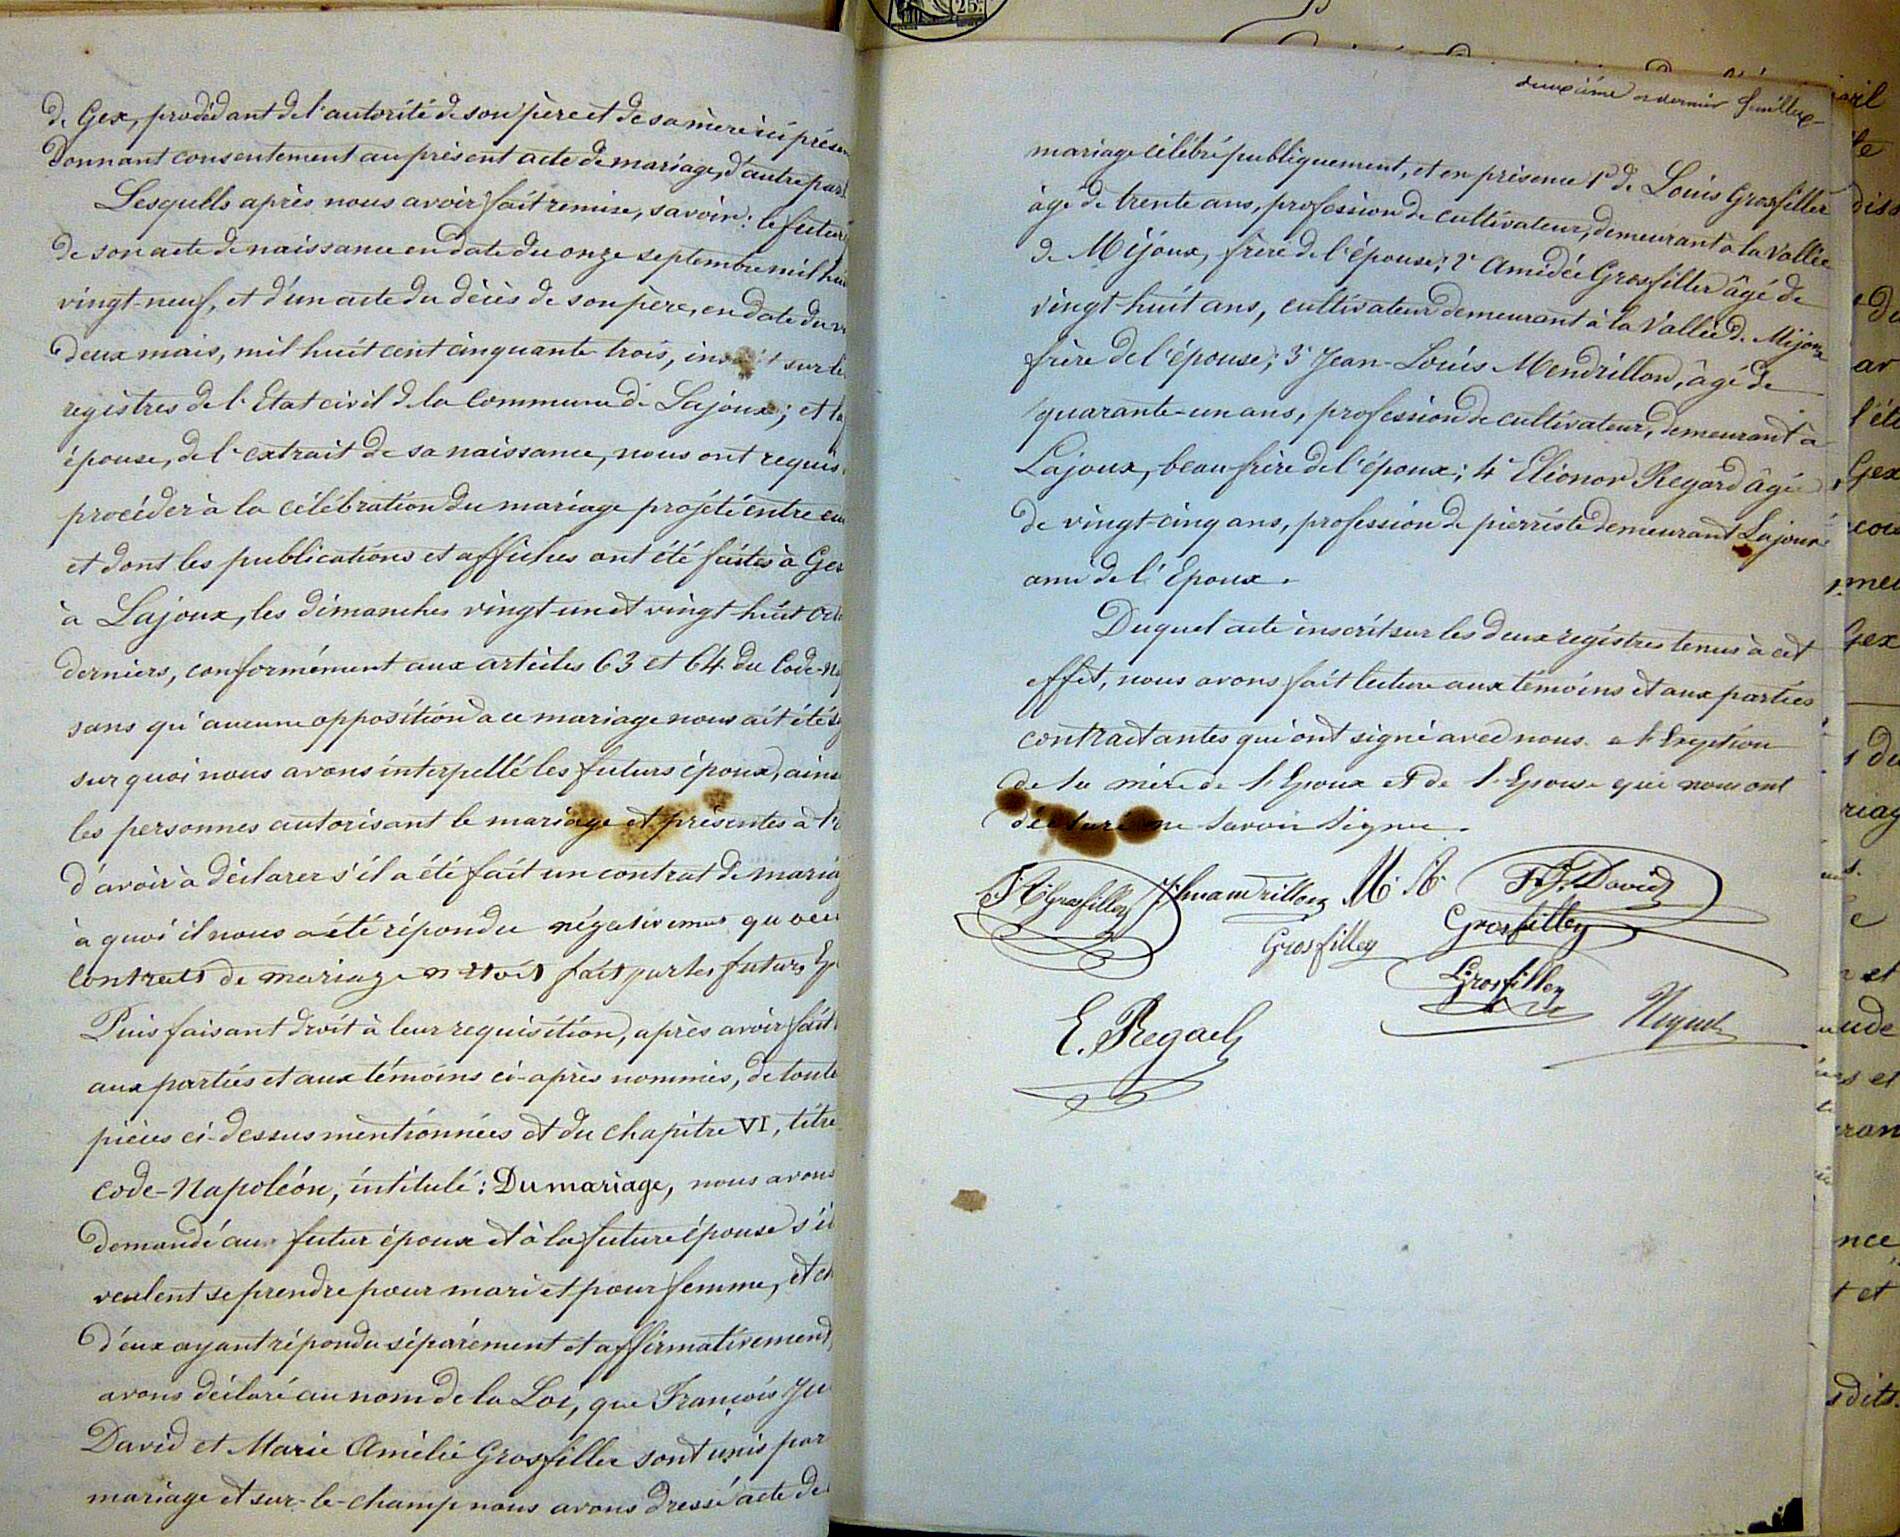 de Gex, procédant de l'autorité de son père et de sa mère ici présen
donnant consentement au présent acte de mariage, d'autre part
Lesquells après nous avoir fait remise, savoir: le futur
de son acte de naissance en date du onze septembre mil hui
vingt-neuf, et d'un acte du décès de son père, en date du
deux mais, mil huit cent cinquante trois, inscrit sur le
registres de l'Etat civil de la Commune de Lajoux; et la
épouse, de l'extrait de sa naissance, nous ont requis
procéder à la célébration du mariage projété entre eux
et dont les publications et affiches ont été faites à Gex
à Lajoux, les dimanches vingt-un et vingt-huit Octo
derniers, conformément aux articles 63 et 64 du Code-Na
sans qu'aucune opposition à ce mariage nous ait été s
sur quoi nous avons interpellé les futurs époux, ains
les personnes autorisant le mariage et présentes à l'
d'avoir à déclarer s'il a été fait un contrat de mariag
à quoi il nous a été répondu négativement qu'aucu
Contrats de mariage n'étoit fait par les futurs Ep
Puis faisant droit à leur requisition, après avoir fait
aux parties et aux témoins ci-après nommés, de toute
pièces ci-dessus mentionnées et du chapitre VI, titre
Code-Napoléon, intitulé: Du mariage, nous avons
demandé au futur époux et à la future épouse s'il
veulent se prendre pour mari et pour femme, et ch
d'eux ayant répondu séparément et affirmativement,
avons déclaré au nom de la Loi, que François Ju
David et Marie Amélie Grosfiller sont unis par
mariage et sur-le-champ nous avons dressé acte de
deuxième et dernier feuillet
mariage célébré publiquement, et en présence 1° de Louis Grosfiller
âgé de trente ans, profession de cultivateur, demeurant à la Vallée
de Mijoux, frère de l'épouse; 2° Amédée Grosfiller âgé de
vingt-huit ans, cultivateur demeurant à la Vallée de Mijoux
frère de l'épouse; 3° Jean-Louis Mendrillon, âgé de
quarante-un ans, profession de cultivateur, demeurant à
Lajoux, beau frère de l'époux; 4° Eléonor Regard âgé
de vingt-cinq ans, profession de pierriste demeurant Lajoux
ami de l'Epoux.
Duquel acte inscrit sur les deux registres tenus à cet
effet, nous avons fait lecture aux témoins et aux parties
contractantes qui ont signé avec nous. a l'Exeption
de la mère de l'Epoux et de l'Epouse qui nous ont
déclaré ne savoir signer.
Grosfilley M. A. F. J. David
Grosfilley Grosfilley
Grosfilley
E. Regad